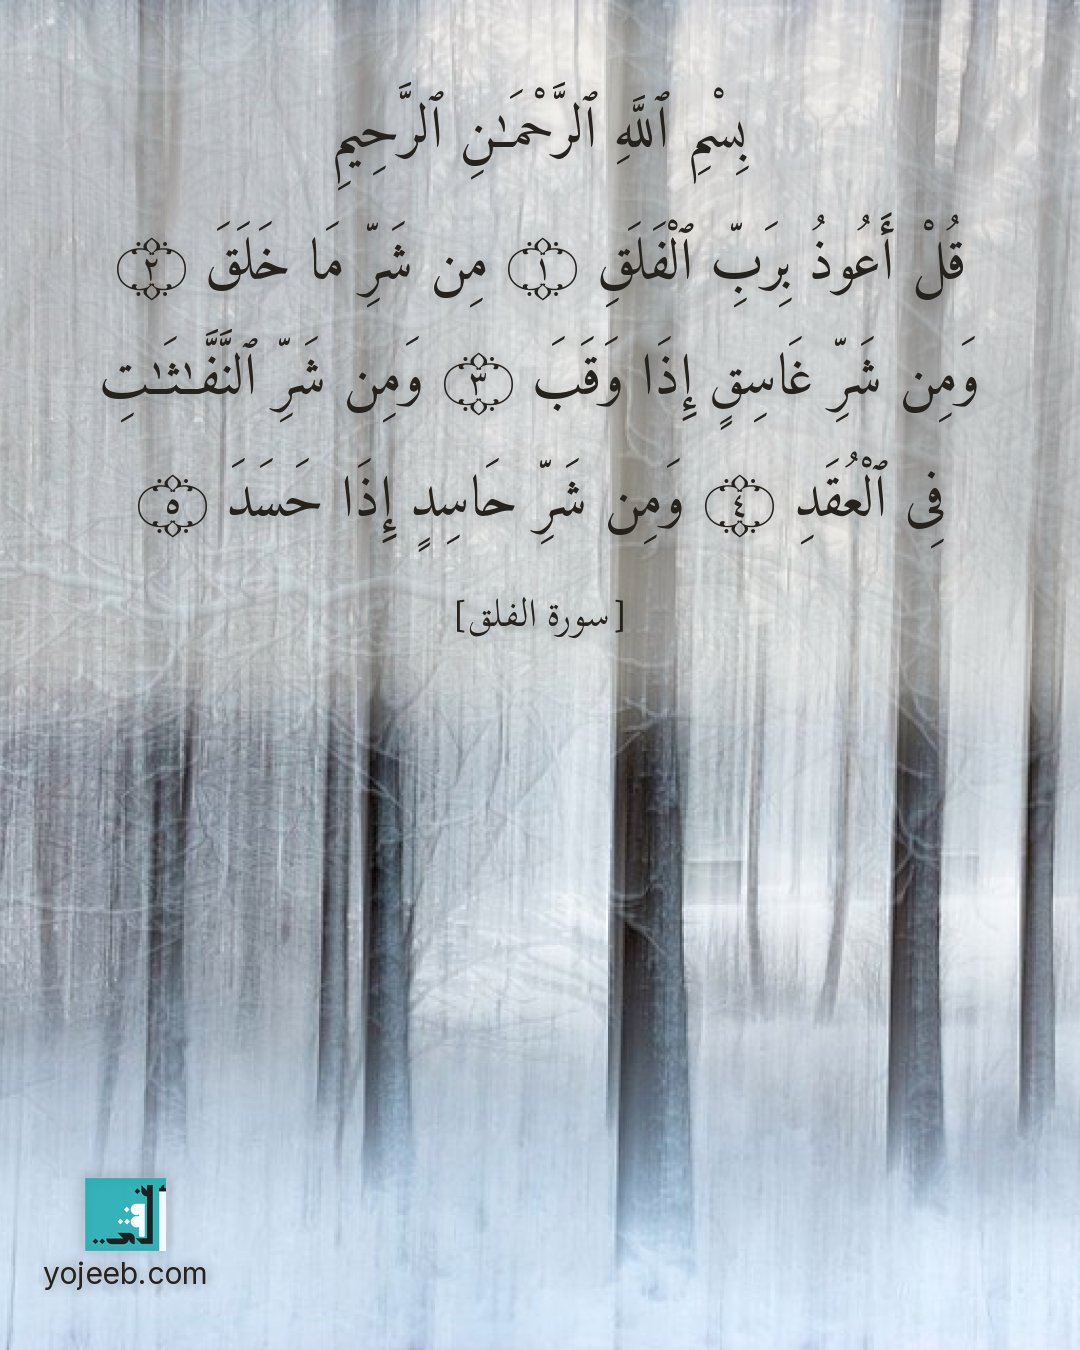 بِسْمِ ٱللَّهِ ٱلرَّحْمَـٰنِ ٱلرَّحِيمِ
قُلْ أَعُوذُ بِرَبِّ ٱلْفَلَقِ ۝١ مِن شَرِّ مَا خَلَقَ ۝٢
وَمِن شَرِّ غَاسِقٍ إِذَا وَقَبَ ۝٣ وَمِن شَرِّ ٱلنَّفَّـٰثَـٰتِ
فِى ٱلْعُقَدِ ۝٤ وَمِن شَرِّ حَاسِدٍ إِذَا حَسَدَ ۝٥
[سورة الفلق]
yojeeb.com